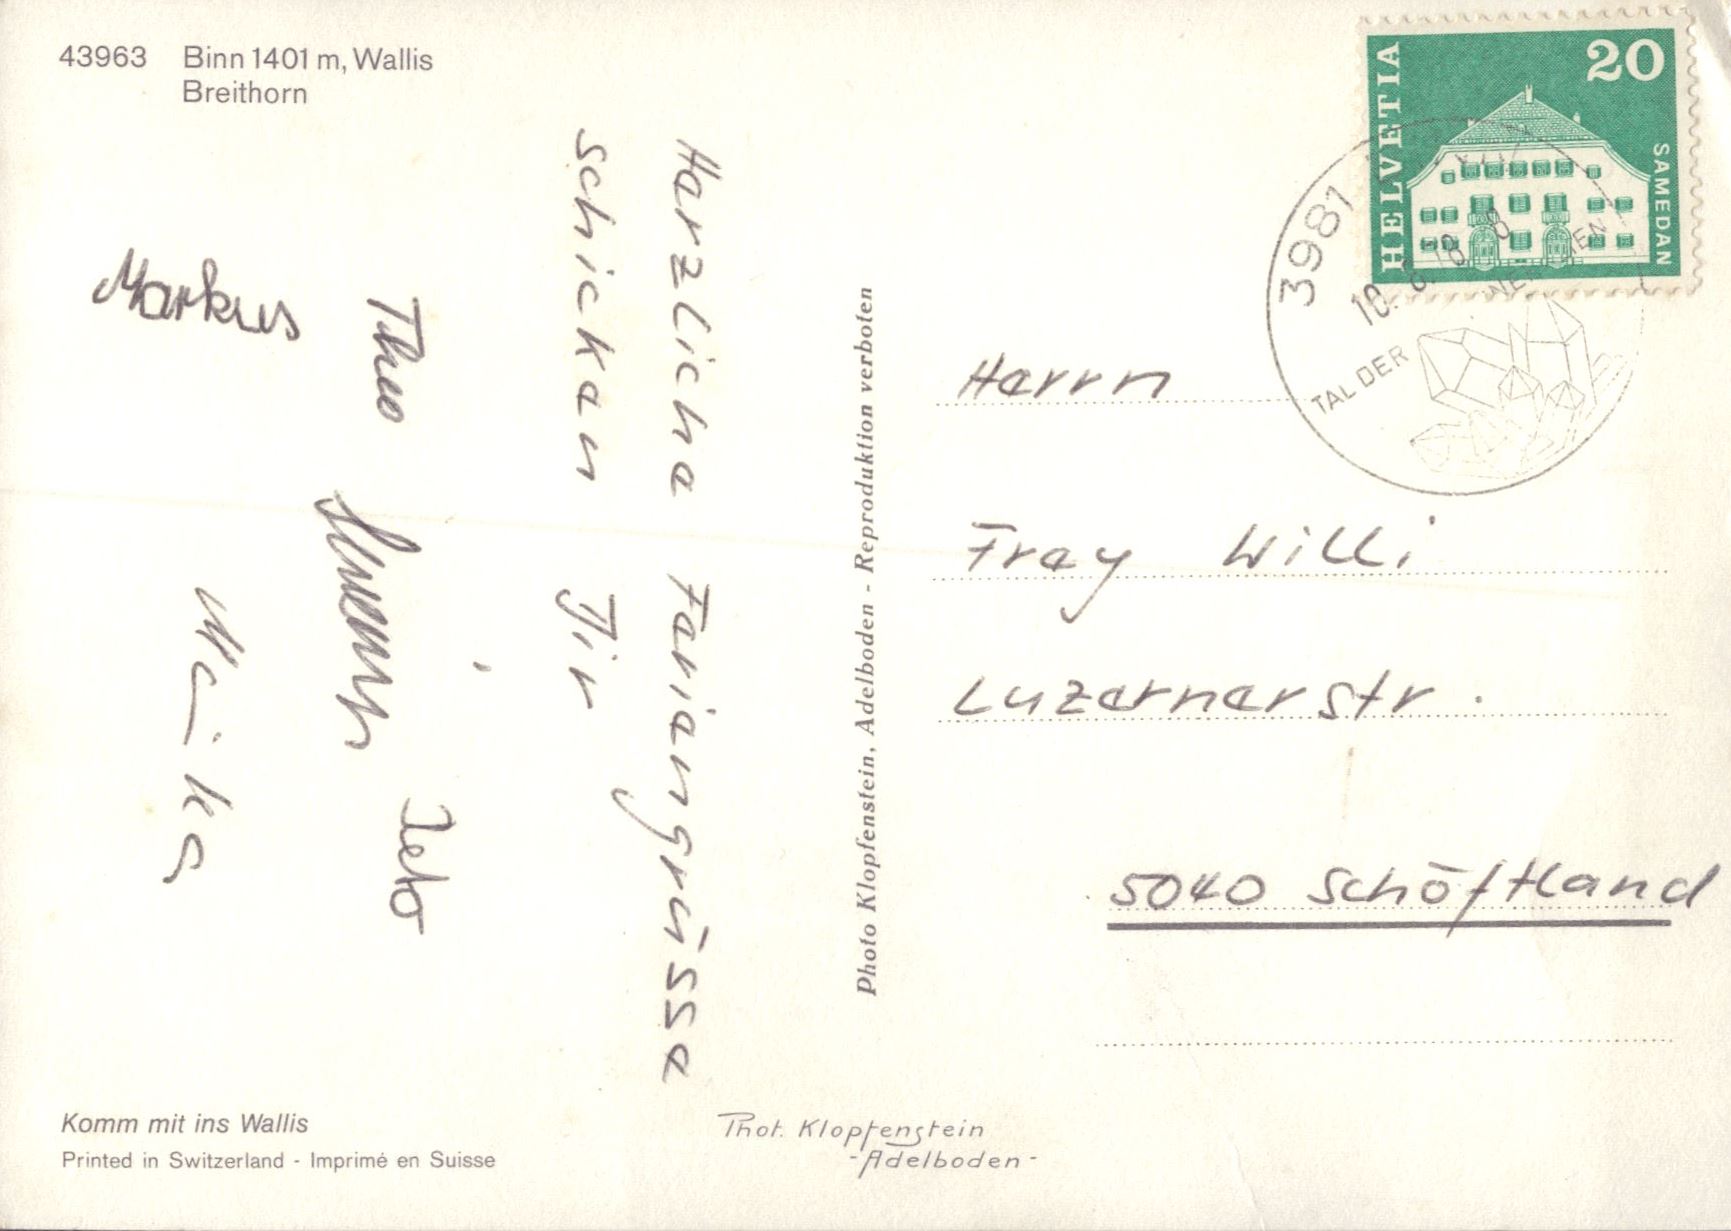 43963 Binn 1401 m, Wallis
Breithorn
Herzliche Feriengrüsse
schicken Dir
Theo
Markus
Heinz
HELVETIA
20
SAMEDAN
3981
TAL DER
Photo Klopfenstein, Adelboden - Reproduktion verboten
Herrn
Frey Willi
Luzernerstr.
5040 Schöftland
Komm mit ins Wallis
Printed in Switzerland - Imprimé en Suisse
Phot. Klopfenstein
-Adelboden-